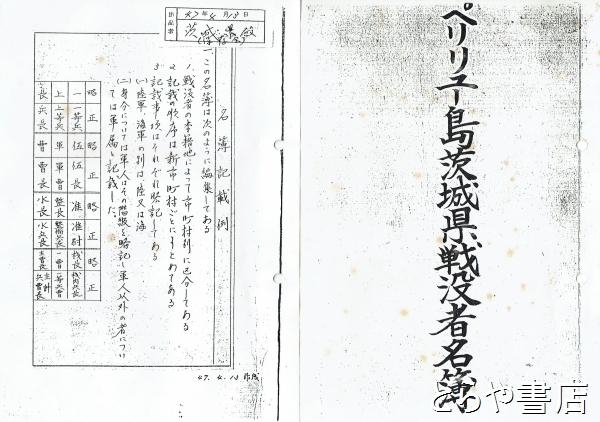 ペリリュー島茨城県戦没者名簿
とみや書店
47年4月13日
茨城県
名簿記載例
一 この名簿は次のように編集してある
1. 戦没者の本籍地によって市町村別に区分してある
2 記載の順序は新市町村ごとにまとめてある
3 記載事項はそれぞれ略記してある
(一) 陸軍海軍の別は陸又は海
(二) 身分については軍人はその階級を略記し軍人以外の者につい
ては軍属と記載した。
略 一 上 長
正 一等兵 上等兵 兵長
伍 軍 曹
伍長 軍曹 曹長
略 准 整長 水長
正 准尉 整備兵長 水兵長
略 機長 一曹 主曹長
正 機関兵長 一等兵曹 主計兵曹長
47.4.13 作成